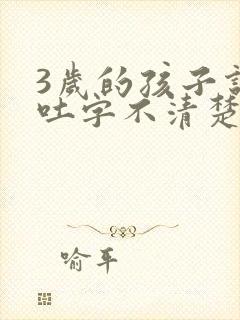 3歲的孩子說
吐字不清楚
喻平